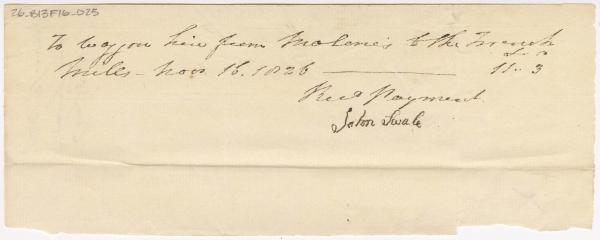 26-B13F16-025
To waggon hire from Malone's to the French
Mills - Nov. 16. 1826 ——— 11. 3
Recd Payment
John Swale